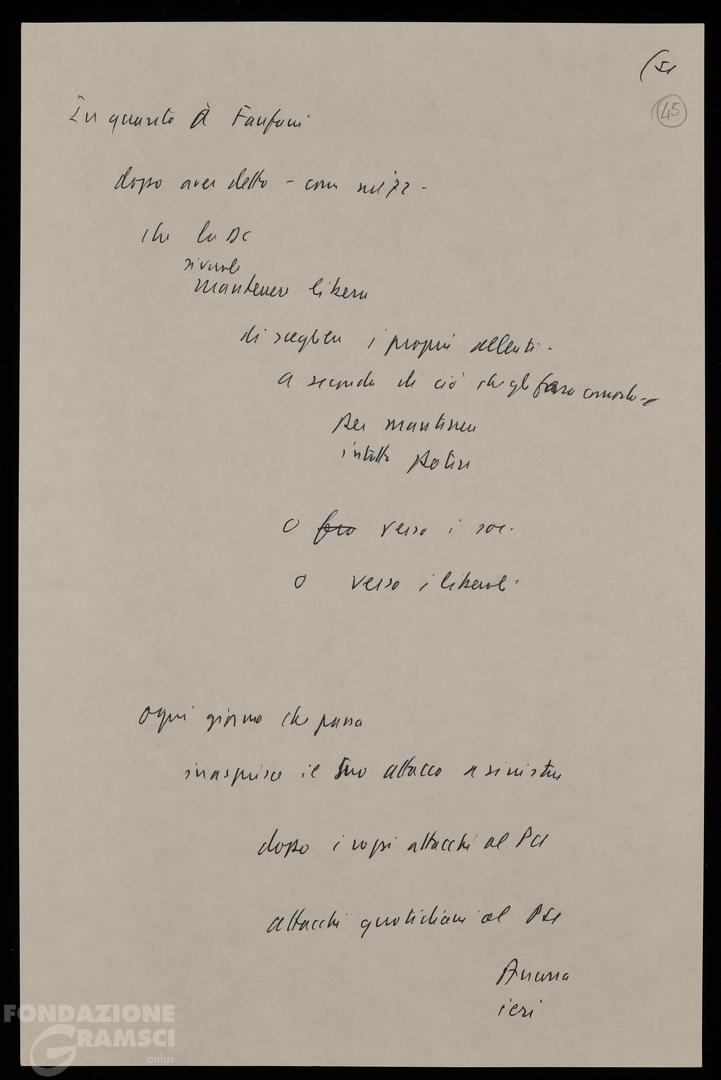 (51
45
In quanto A Fanfani
dopo aver detto - come nel '72 -
che la DC
si vuole
mantenere libera
di scegliere i propri alleati -
a seconda di ciò che gli fara comodo -
per mantenere
intatto potere
O verso i soc.
O verso i liberali
Ogni giorno che passa
inasprisce il suo attacco a sinistra
dopo i attacchi al PCI
attacchi quotidiani al PSI
Ancora
ieri
FONDAZIONE
GRAMSCI
onlus